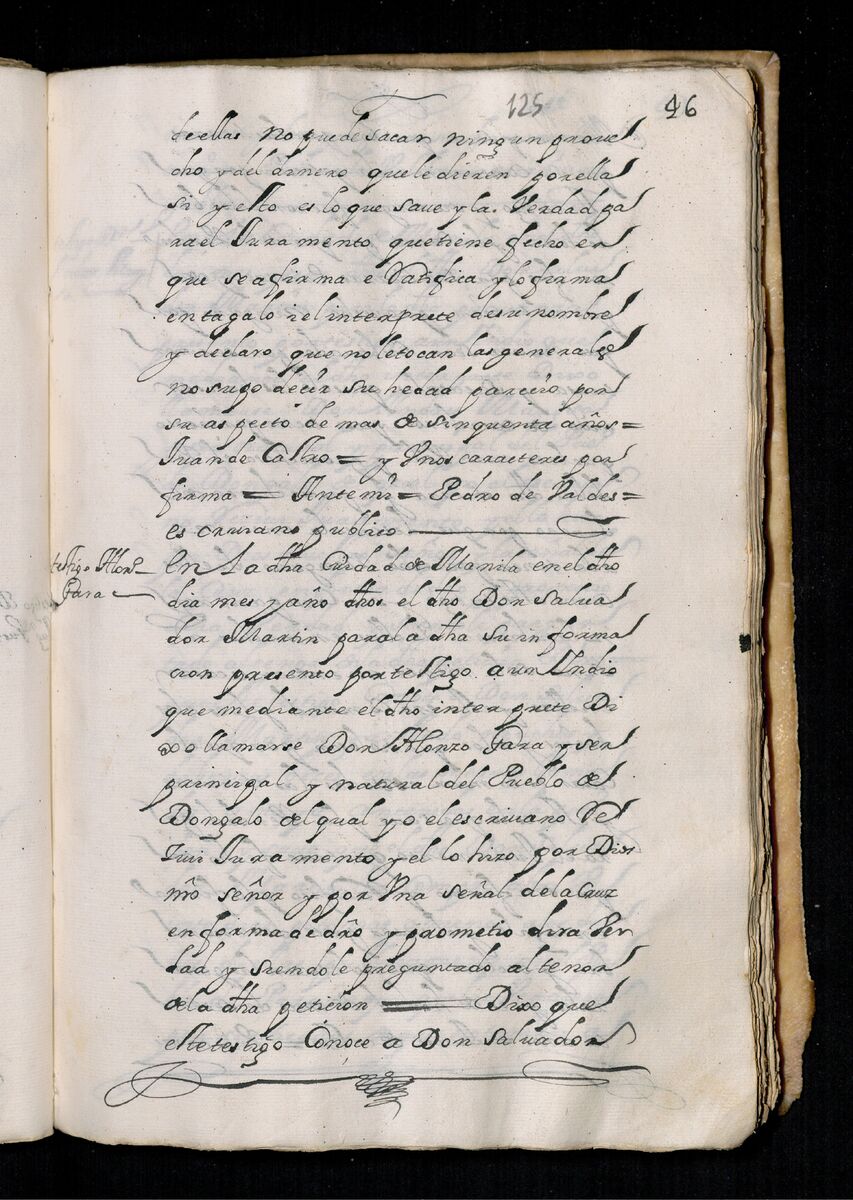 125 46
de ellas no puede sacar ningun prove
cho y del dinero que le dieren por ella
si y esto es lo que save y la Verdad pa
ra el Juramento que tiene fecho en
que se afirma e Ratifica y lo firma
en tagalo i el interprete de su nombre
y declaro que no le tocan las generales
no supo decir su hedad parecio por
su aspecto de mas de sinquenta años =
Juan de Castro = y Vnos caracteres por
firma = Ante mi = Pedro de Valdes =
escriuano publico
testigo Alonso
Gara
En La dha Ciudad de Manila en el dho
dia mes y año dhos el dho Don Salua
dor Martin para la dha su informa
cion presento por testigo a un Yndio
que mediante el dho interprete Di
xo llamarse Don Alonzo Gara y ser
principal y natural del Pueblo de
Dongalo del qual yo el escriuano Re
siui Juramento y el lo hizo por Dios
nro señor y por Vna señal de la Cruz
en forma de dro y prometio dira Ver
dad y siendole preguntado al tenor
de la dha peticion = Dixo que
este testigo Conoce a Don Saluador